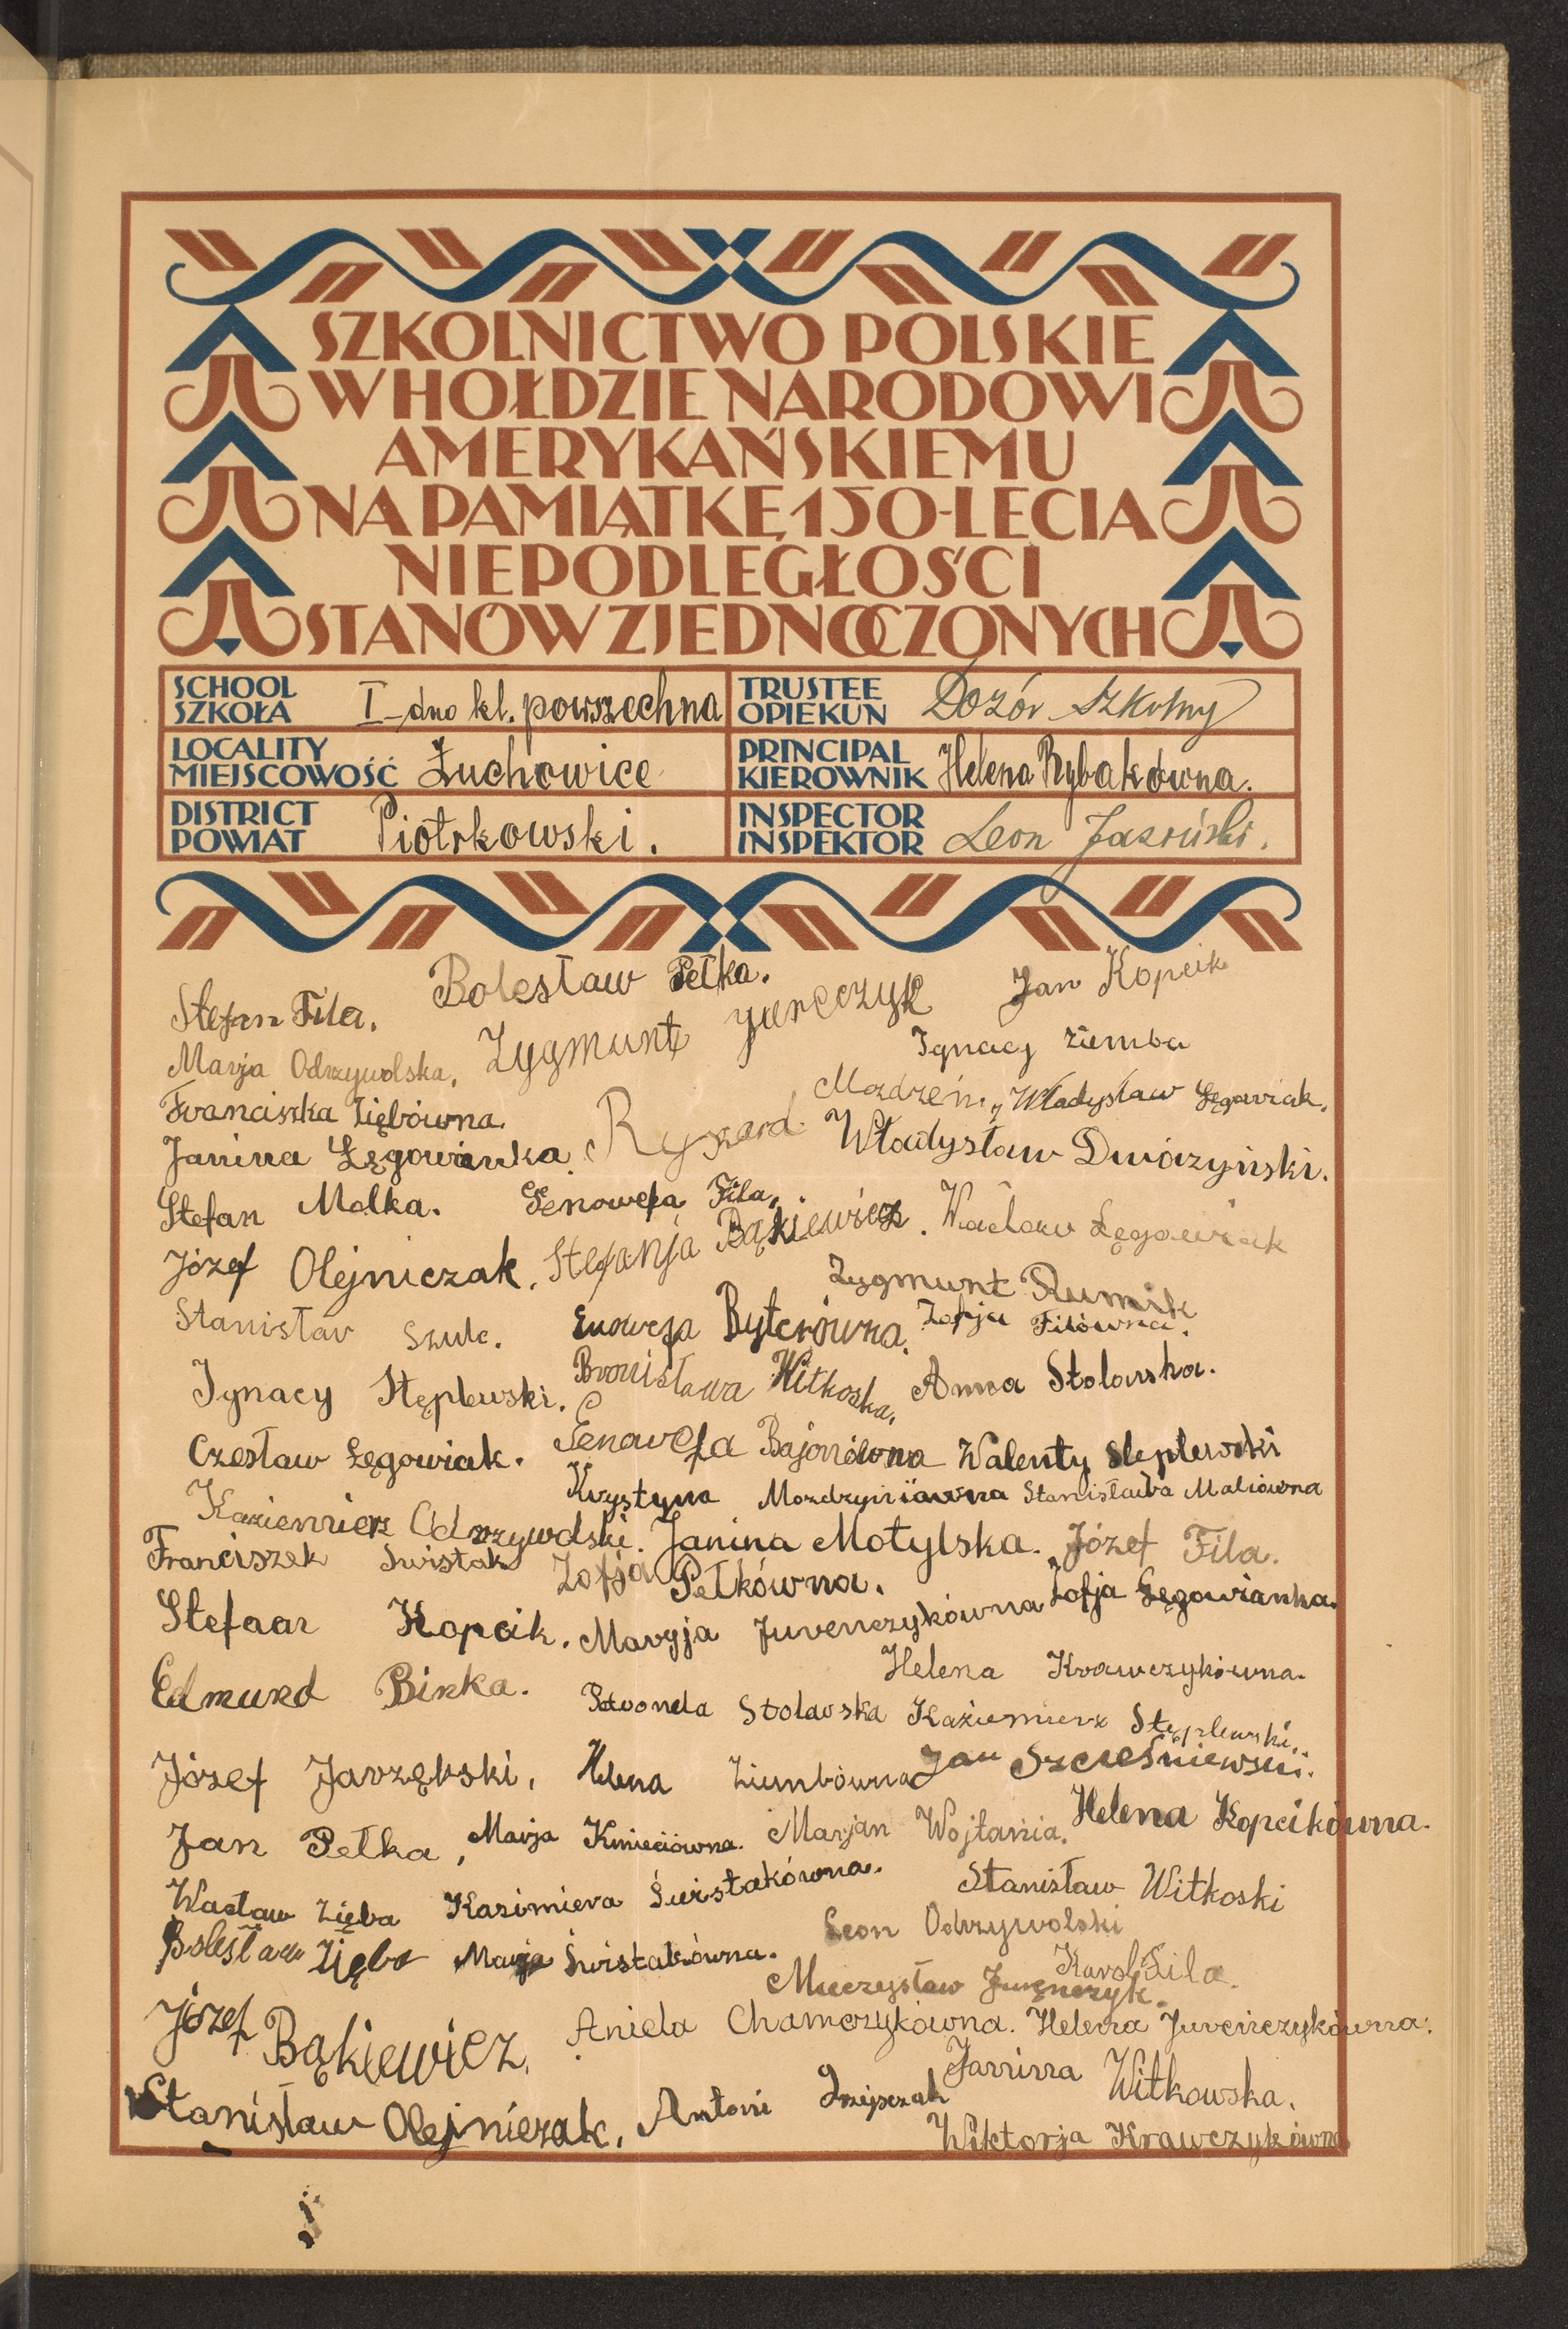 SZKOLNICTWO POLSKIE
W HOŁDZIE NARODOWI
AMERYKAŃSKIEMU
NA PAMIĄTKĘ 150-LECIA
NIEPODLEGŁOŚCI
STANÓW ZJEDNOCZONYCH
SCHOOL
SZKOŁA
I-dno kl. powszechna
TRUSTEE
OPIEKUN
Dozór Szkolny
LOCALITY
MIEJSCOWOŚĆ
Żuchowice
PRINCIPAL
KIEROWNIK
Helena Rybakówna.
DISTRICT
POWIAT
Piotrkowski.
INSPECTOR
INSPEKTOR
Leon
Bolesław Pełka.
Jan Kopcik
Stefan Fila.
Zygmunt Jurczyk
Ignacy Ziemba
Marja Odrzywolska,
Franciszka Ziębówna.
Władysław Łęgowiak.
Janina Łęgowianka.
Ryszard
Władysław Dwórzyński.
Stefan Malka.
Genowefa Fila,
Józef Olejniczak.
Stefanja Bąkiewicz.
Wacław Łęgowiak
Zygmunt Rumik
Stanisław Szulc.
Enowefa Byterówna.
Zofja Filówna.
Ignacy Stęplewski.
Bronisława Witkoska,
Anna Stolarska.
Czesław Łęgowiak.
Genowefa Bajonówna
Walenty Stęplewski
Krystyna
Stanisława Maliówna
Kazimierz Odrzywolski.
Janina Motylska.
Józef Fila.
Franciszek Swistak
Zofja Pełkówna.
Zofja Łęgowianka.
Stefan Kopcik.
Maryja Jurenczykówna
Helena Krawczykówna.
Edmund Binka.
Petronela Stolarska
Kazimierz Stęplewski.
Józef Jarzębski,
Helena Ziembówna
Jan Szcześniewski.
Jan Pełka,
Marja Kmieciówna.
Marjan Wojtania.
Helena Kopcikówna.
Wacław Zięba
Kazimiera Świstakówna.
Stanisław Witkoski
Bolesław Zięba
Marja Świstakówna.
Leon Odrzywolski
Karol Fila.
Mieczysław Jurenczyk.
Józef Bąkiewicz.
Aniela Chamczykówna.
Helena Jurenczykówna.
Janina Witkowska.
Stanisław Olejniczak.
Antoni
Wiktorja Krawczykówna